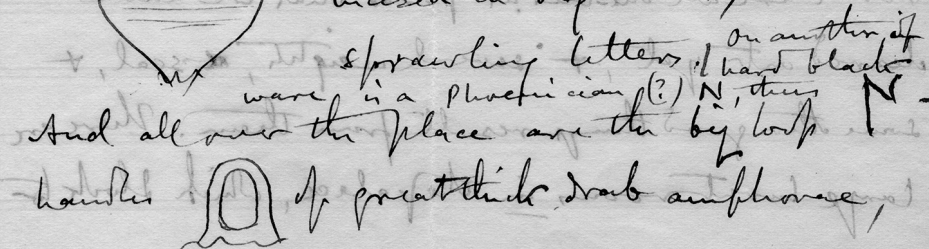 sprawling letters. / on another, of hard black
ware is a Phoenician (?) N, thus N.
And all over the place are the big loop
handles of great thick drab amphorae,